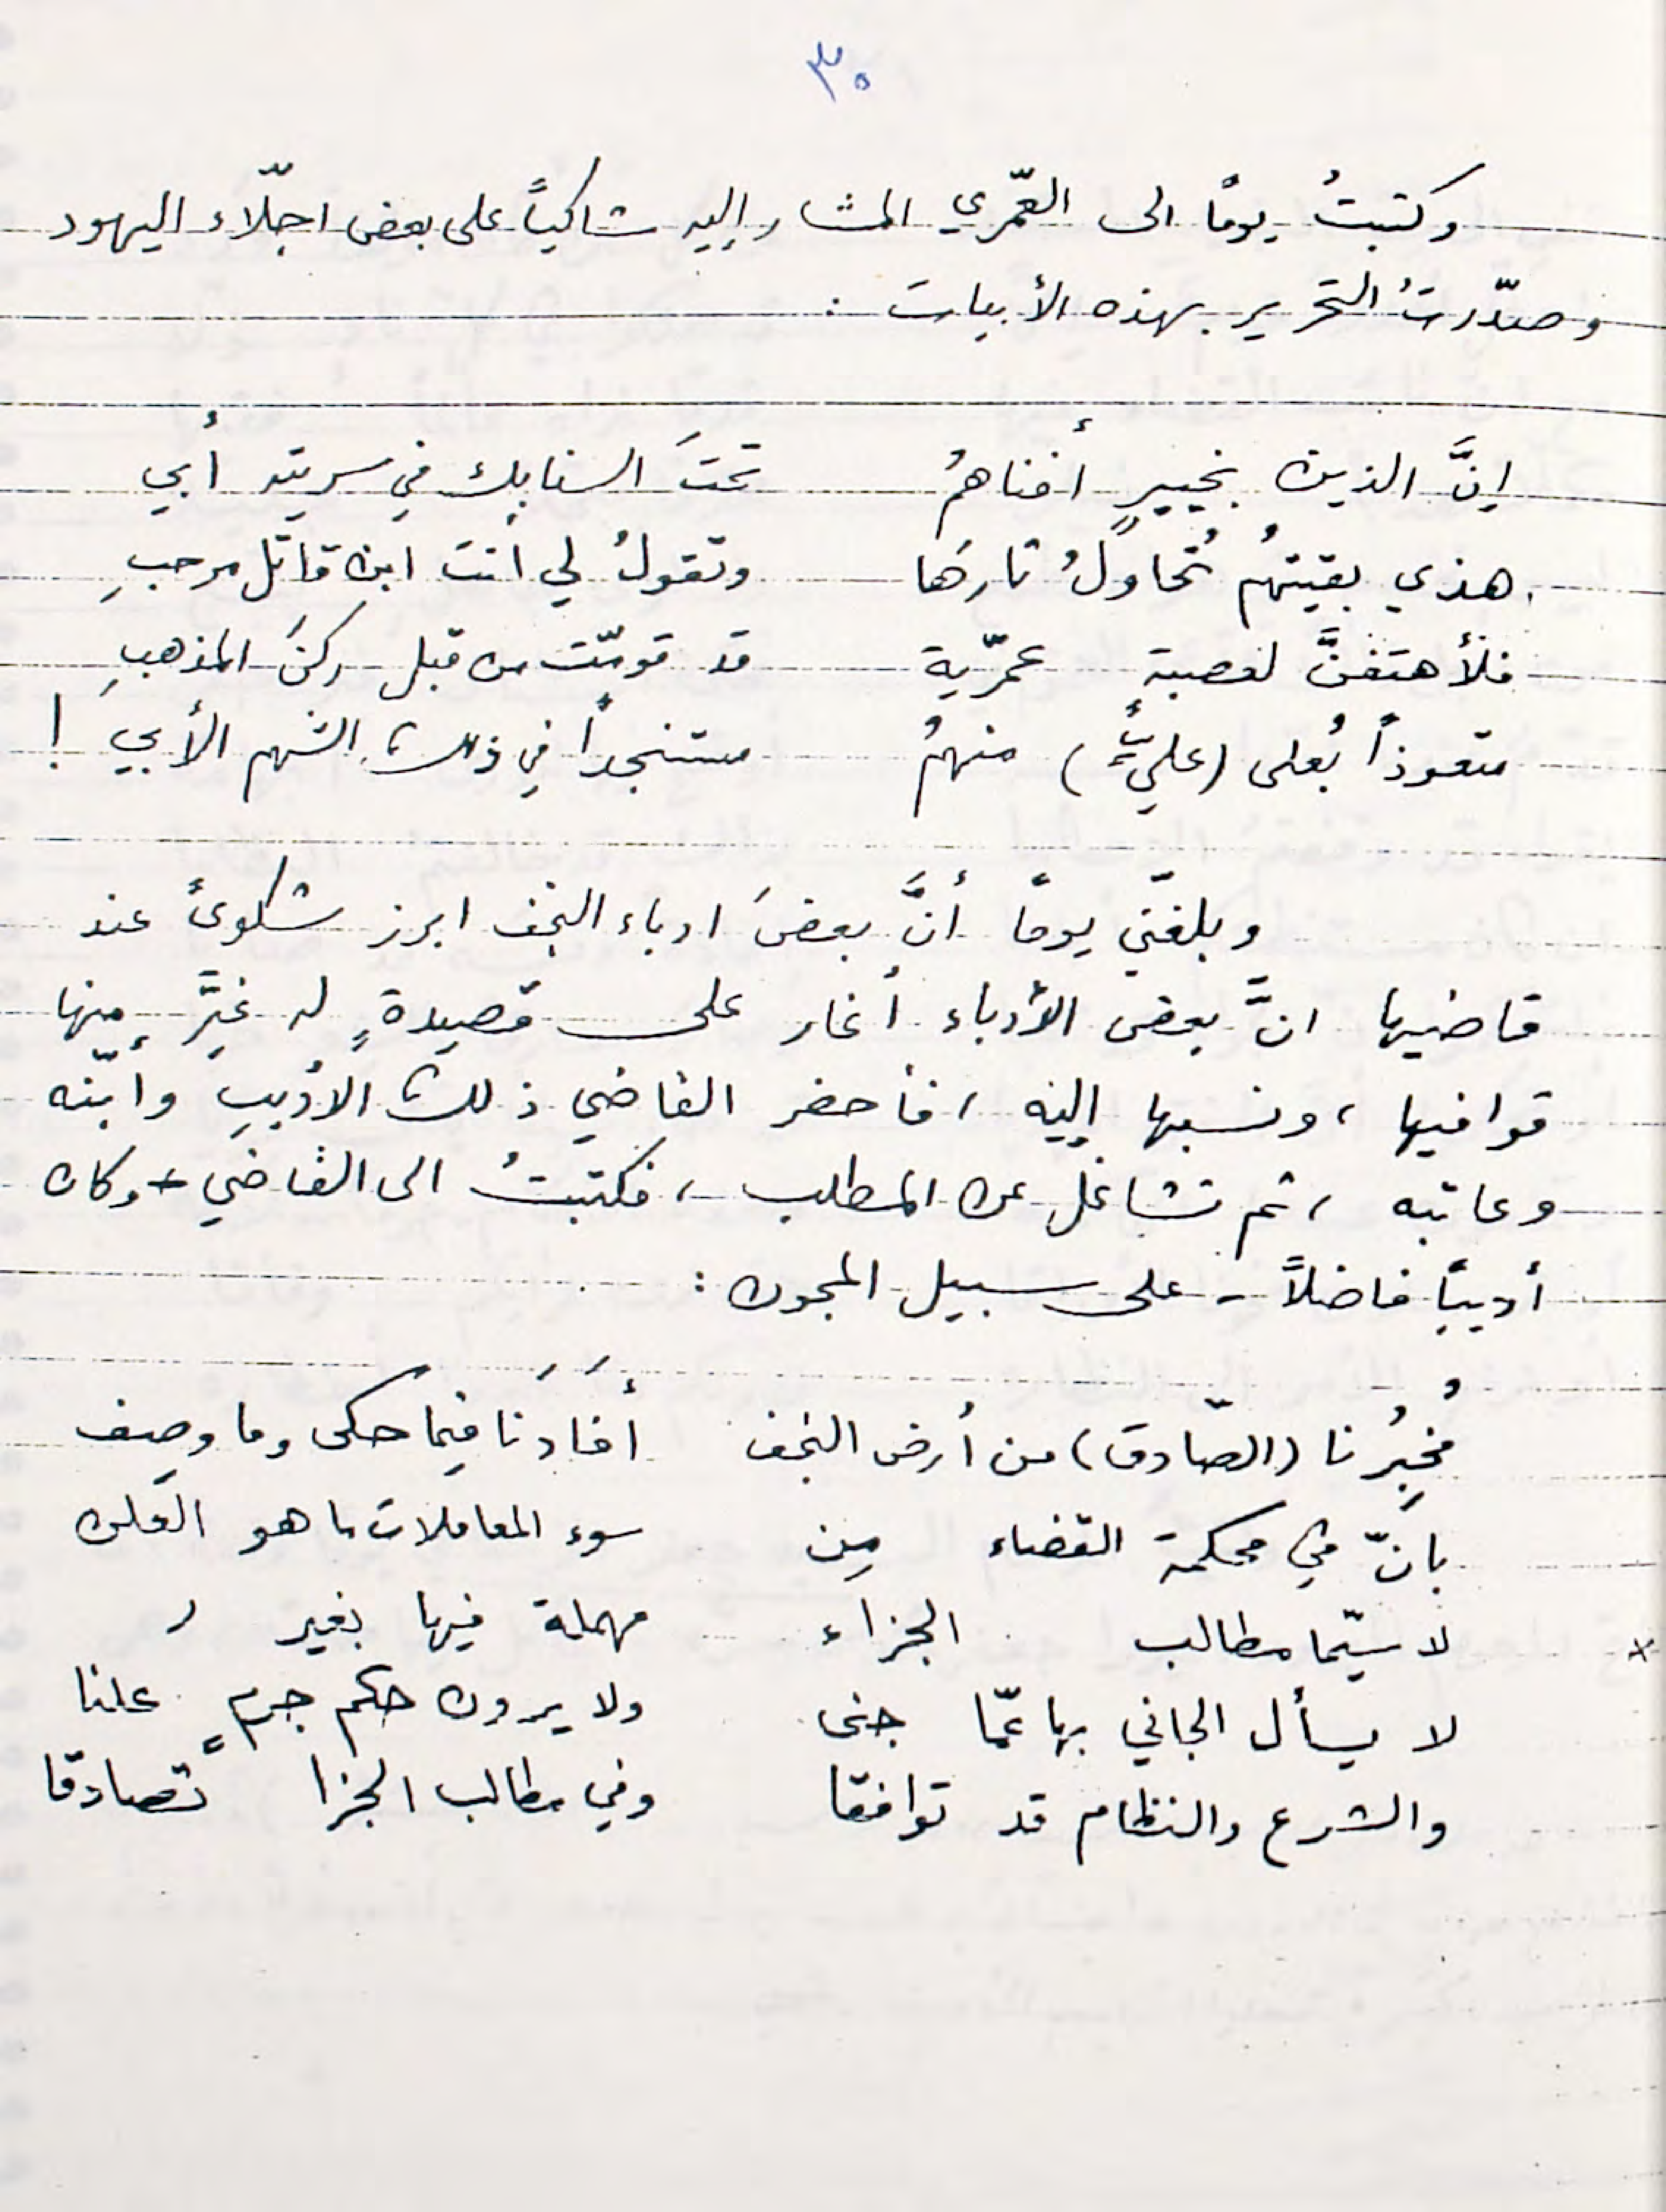 ٣٠
وكتبتُ يوماً الى العمّري المشار إليه شاكياً على بعض اجلّاء اليهود
وصدّرتُ التحرير بهذه الأبيات :
إنَّ الذين بخيبرٍ أفناهمُ تحتَ السنابك في سريته أبي
هذي بقيتهُم تُحاولُ ثارها وتقولُ لي أنتَ ابن قاتل مرحبِ
فلأهتفنَّ لعصبة عمرّية قد قوّمت من قبل ركنَ المذهبِ
متعوذاً بُعلى (عليٍّ) منهمُ مستنجداً في ذلك الشهم الأبي !
وبلغني يوماً أنَّ بعضَ ادباء النجف ابرز شكوىً عند
قاضيها انَّ بعض الأدباء أغار على قصيدةٍ له غيَّر منها
قوافيها ، ونسبها إليه ، فأحضر القاضي ذلك الأديب وأنّبه
وعاتبه ، ثم تشاغل عن المطلب ، فكتبتُ الى القاضي - وكان
أديباً فاضلاً - على سبيل المجون :
مُخبِرُنا (الصّادق) من أرض النجف أفادَنا فيما حكى وما وصف
بانّ في محكمة القضاء مِن سوء المعاملات ما هو العلن
* لا سيّما مطالب الجزاء مهملة فيها بغير ر
لا يسأل الجاني بها عمّا جنى ولا يرون حكم جرمٍ علنا
والشرع والنظام قد توافقا وفي مطالب الجزا تصادقا